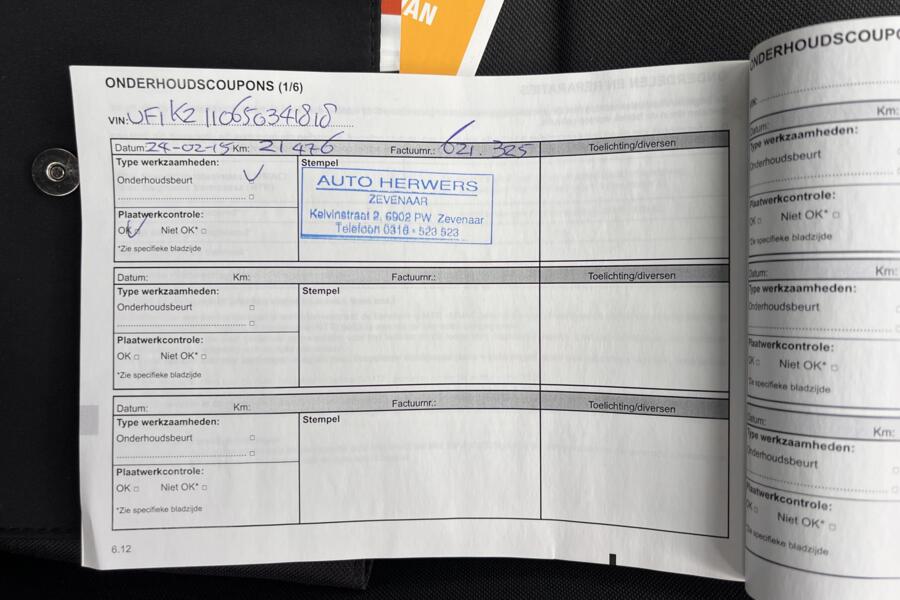 VAN
ONDERHOUDSCOUPONS (1/6)
VIN: UF1K2110650341818
Datum: 24-02-15 Km: 21476 Factuurnr.: 621.325 Toelichting/diversen
Type werkzaamheden:
Onderhoudsbeurt
Plaatwerkcontrole:
OK Niet OK*
*Zie specifieke bladzijde
Stempel
AUTO HERWERS
ZEVENAAR
Kelvinstraat 2, 6902 PW Zevenaar
Telefoon 0316 - 523 523
Datum: Km: Factuurnr.: Toelichting/diversen
Type werkzaamheden:
Onderhoudsbeurt
Plaatwerkcontrole:
OK Niet OK*
*Zie specifieke bladzijde
Stempel
Datum: Km: Factuurnr.: Toelichting/diversen
Type werkzaamheden:
Onderhoudsbeurt
Plaatwerkcontrole:
OK Niet OK*
*Zie specifieke bladzijde
Stempel
6.12
ONDERHOUDSCOUPO
VIN:
Datum: Km:
Type werkzaamheden:
Onderhoudsbeurt
Plaatwerkcontrole:
OK Niet OK*
*Zie specifieke bladzijde
Datum: Km:
Type werkzaamheden:
Onderhoudsbeurt
Plaatwerkcontrole:
OK Niet OK*
*Zie specifieke bladzijde
Datum: Km:
Type werkzaamheden:
Onderhoudsbeurt
Plaatwerkcontrole:
OK Niet OK*
*Zie specifieke bladzijde